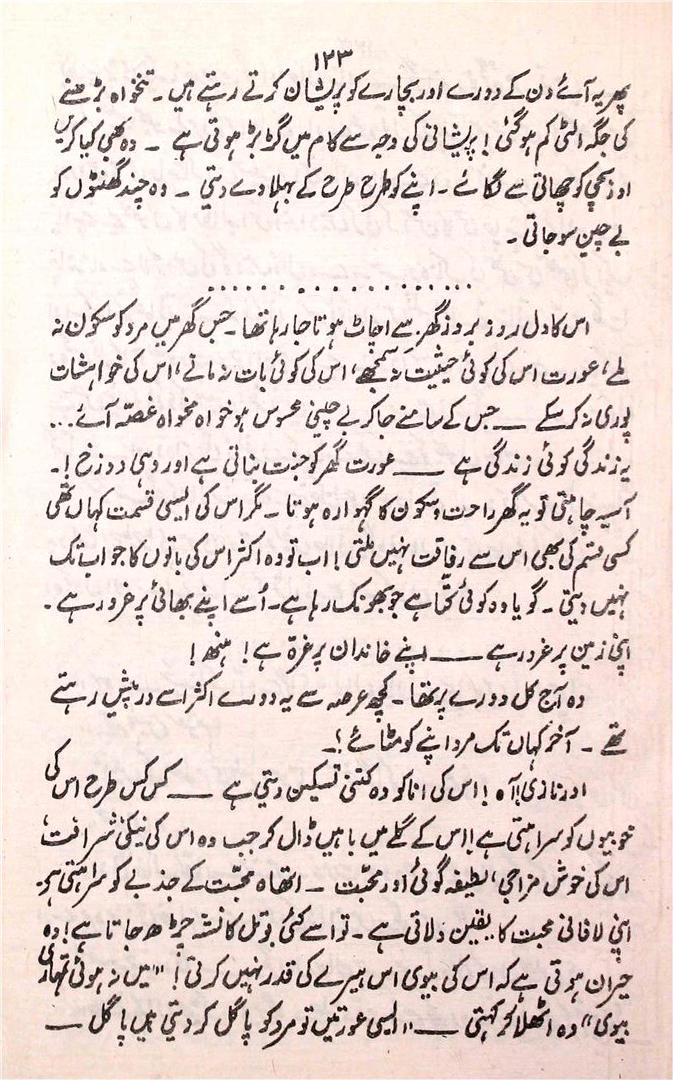 ۱۲۳
پھر یہ آئے دن کے دورے اور بچارے کو پریشان کرتے رہتے ہیں ۔ تنخواہ بڑھنے
کی جگہ الٹی کم ہو گئی ! پریشانی کی وجہ سے کام میں گڑ بڑ ہوتی ہے ۔ وہ بھی کیا کریں
اور بچی کو چھاتی سے لگائے ۔ اپنے کو طرح طرح کے بہلاوے دیتی ۔ وہ چند گھنٹوں کو
بے چین سو جاتی ۔
. . . . . . . . . . . . . . . . . . .
اس کا دل روز بروز گھر سے اچاٹ ہوتا جا رہا تھا ۔ جس گھر میں مرد کو سکون نہ
ملے ، عورت اس کی کوئی حیثیت نہ سمجھے ، اس کی کوئی بات نہ مانے ، اس کی خواہشات
پوری نہ کر سکے ـــ جس کے سامنے جا کر بے چینی محسوس ہو خواہ مخواہ غصّہ آئے ...
یہ زندگی کوئی زندگی ہے ـــ عورت گھر کو جنت بناتی ہے اور وہی دوزخ ! ۔
آسیہ چاہتی تو یہ گھر راحت و سکون کا گہوارہ ہوتا ۔ مگر اس کی ایسی قسمت کہاں تھی
کسی قسم کی بھی اس سے رفاقت نہیں ملتی ! اب تو وہ اکثر اس کی باتوں کا جواب تک
نہیں دیتی ۔ گویا وہ کوئی کتّا ہے جو بھونک رہا ہے ۔ اُسے اپنے بھائی پر غرور ہے ۔
اپنی زمین پر غرور ہے ـــ اپنے خاندان پر غرّہ ہے ! ہنھ !
وہ آج کل دورے پر تھا ۔ کچھ عرصہ سے یہ دورے اکثر اسے درپیش رہتے
تھے ۔ آخر کہاں تک مرد اپنے کو مٹائے ! ۔
اور نازی ! آہ ! اس کی انا کو وہ کتنی تسکین دیتی ہے ـــ کس کس طرح اس کی
خوبیوں کو سراہتی ہے ! اس کے گلے میں باہیں ڈال کر جب وہ اس کی نیکی ، شرافت ،
اس کی خوش مزاجی ، لطیفہ گوئی اور محبت ۔ اتھاہ محبّت کے جذبے کو سراہتی ہے ۔
اپنی لافانی محبت کا یقین دلاتی ہے ۔ تو اسے کئی بوتل کا نشہ چڑھ جاتا ہے ! وہ
حیران ہوتی ہے کہ اس کی بیوی اس ہیرے کی قدر نہیں کرتی ! "میں نہ ہوئی تمہاری
بیوی" وہ اٹھلا کر کہتی ـــ "ایسی عورتیں تو مرد کو پاگل کر دیتی ہیں پاگل ـــ